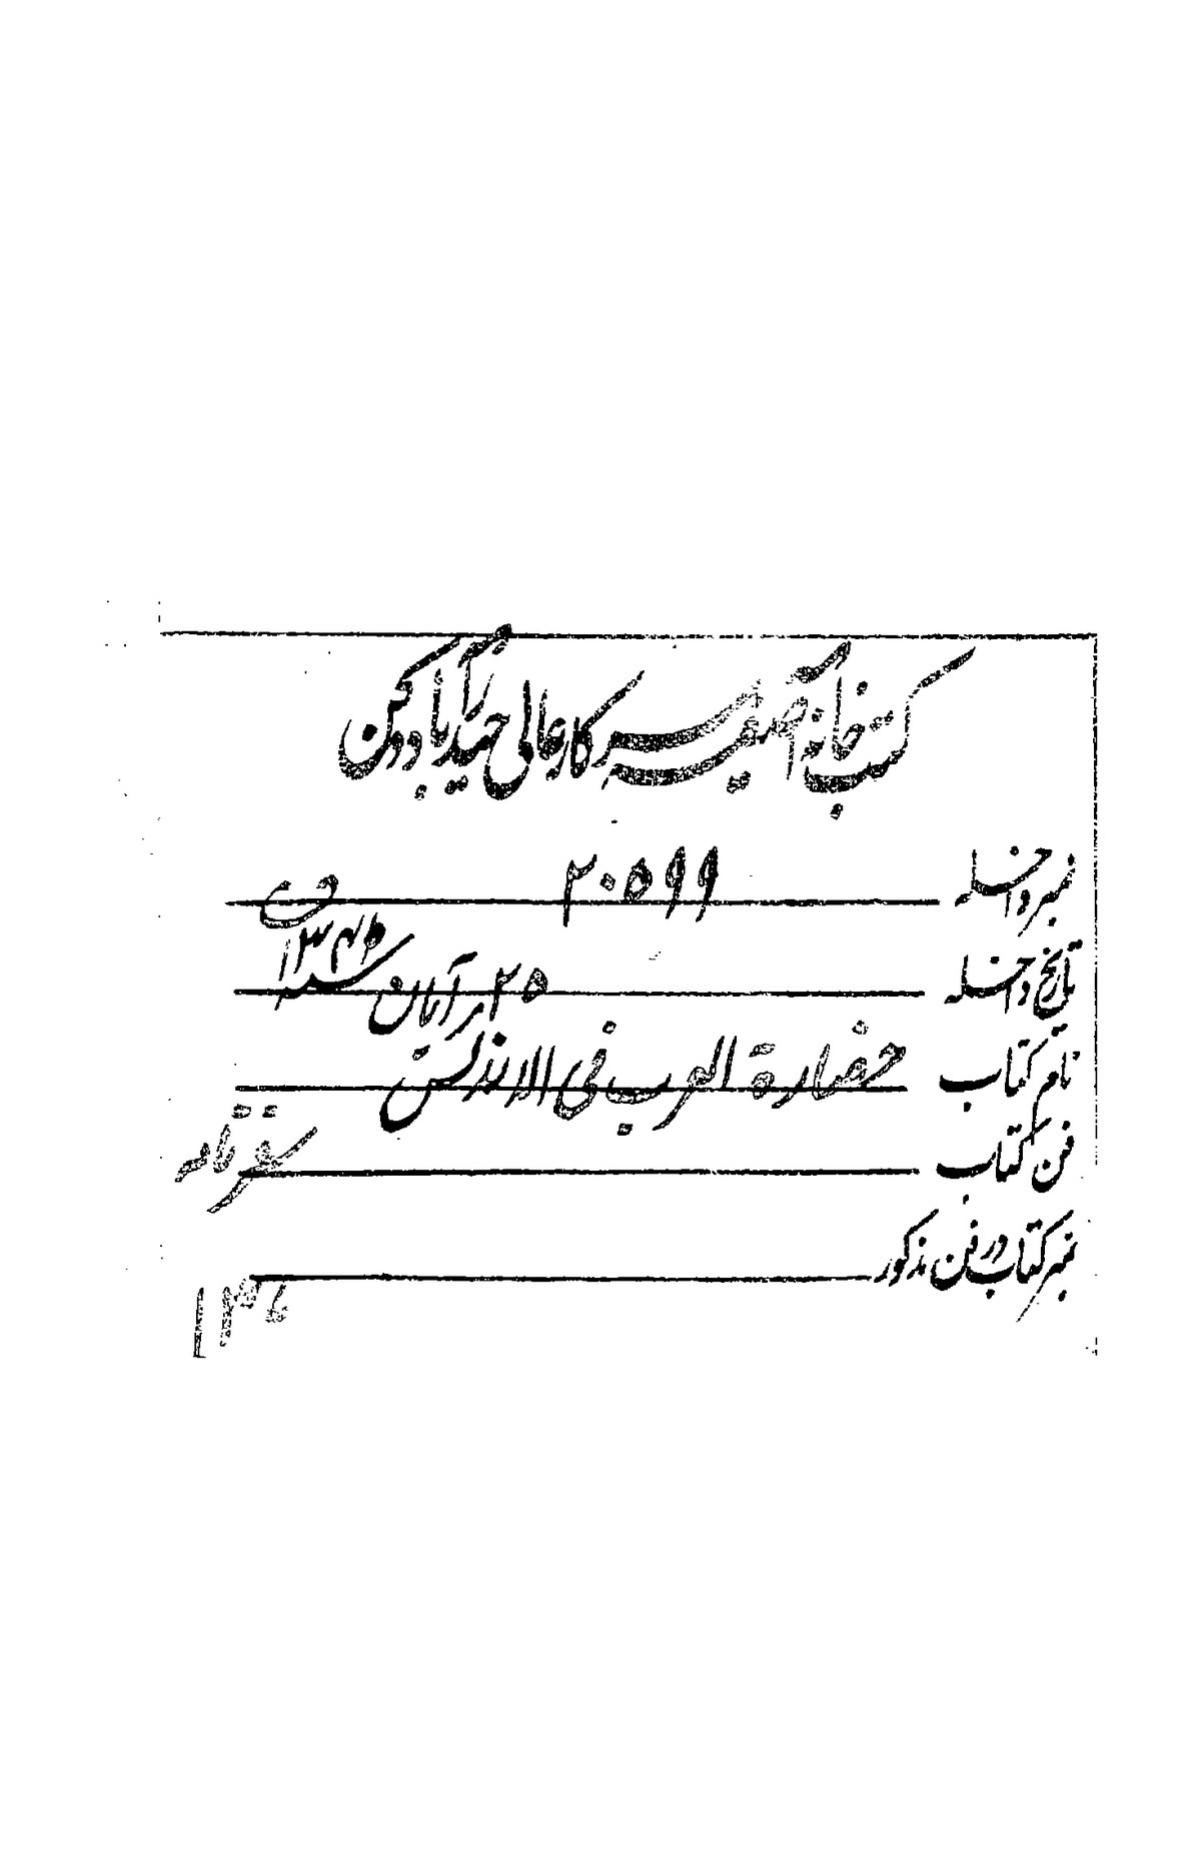 کتب خانہ آصفیہ سرکار عالی حیدرآباد دکن
نمبر داخلہ ۲۰۵۹۹
تاریخ داخلہ ۲۵ ابر آبان سنہ ۱۳۴۵ ف
نام کتاب حضارة العرب فی الاندلس
فن کتاب سفرنامہ
نمبر کتاب در فن مذکور